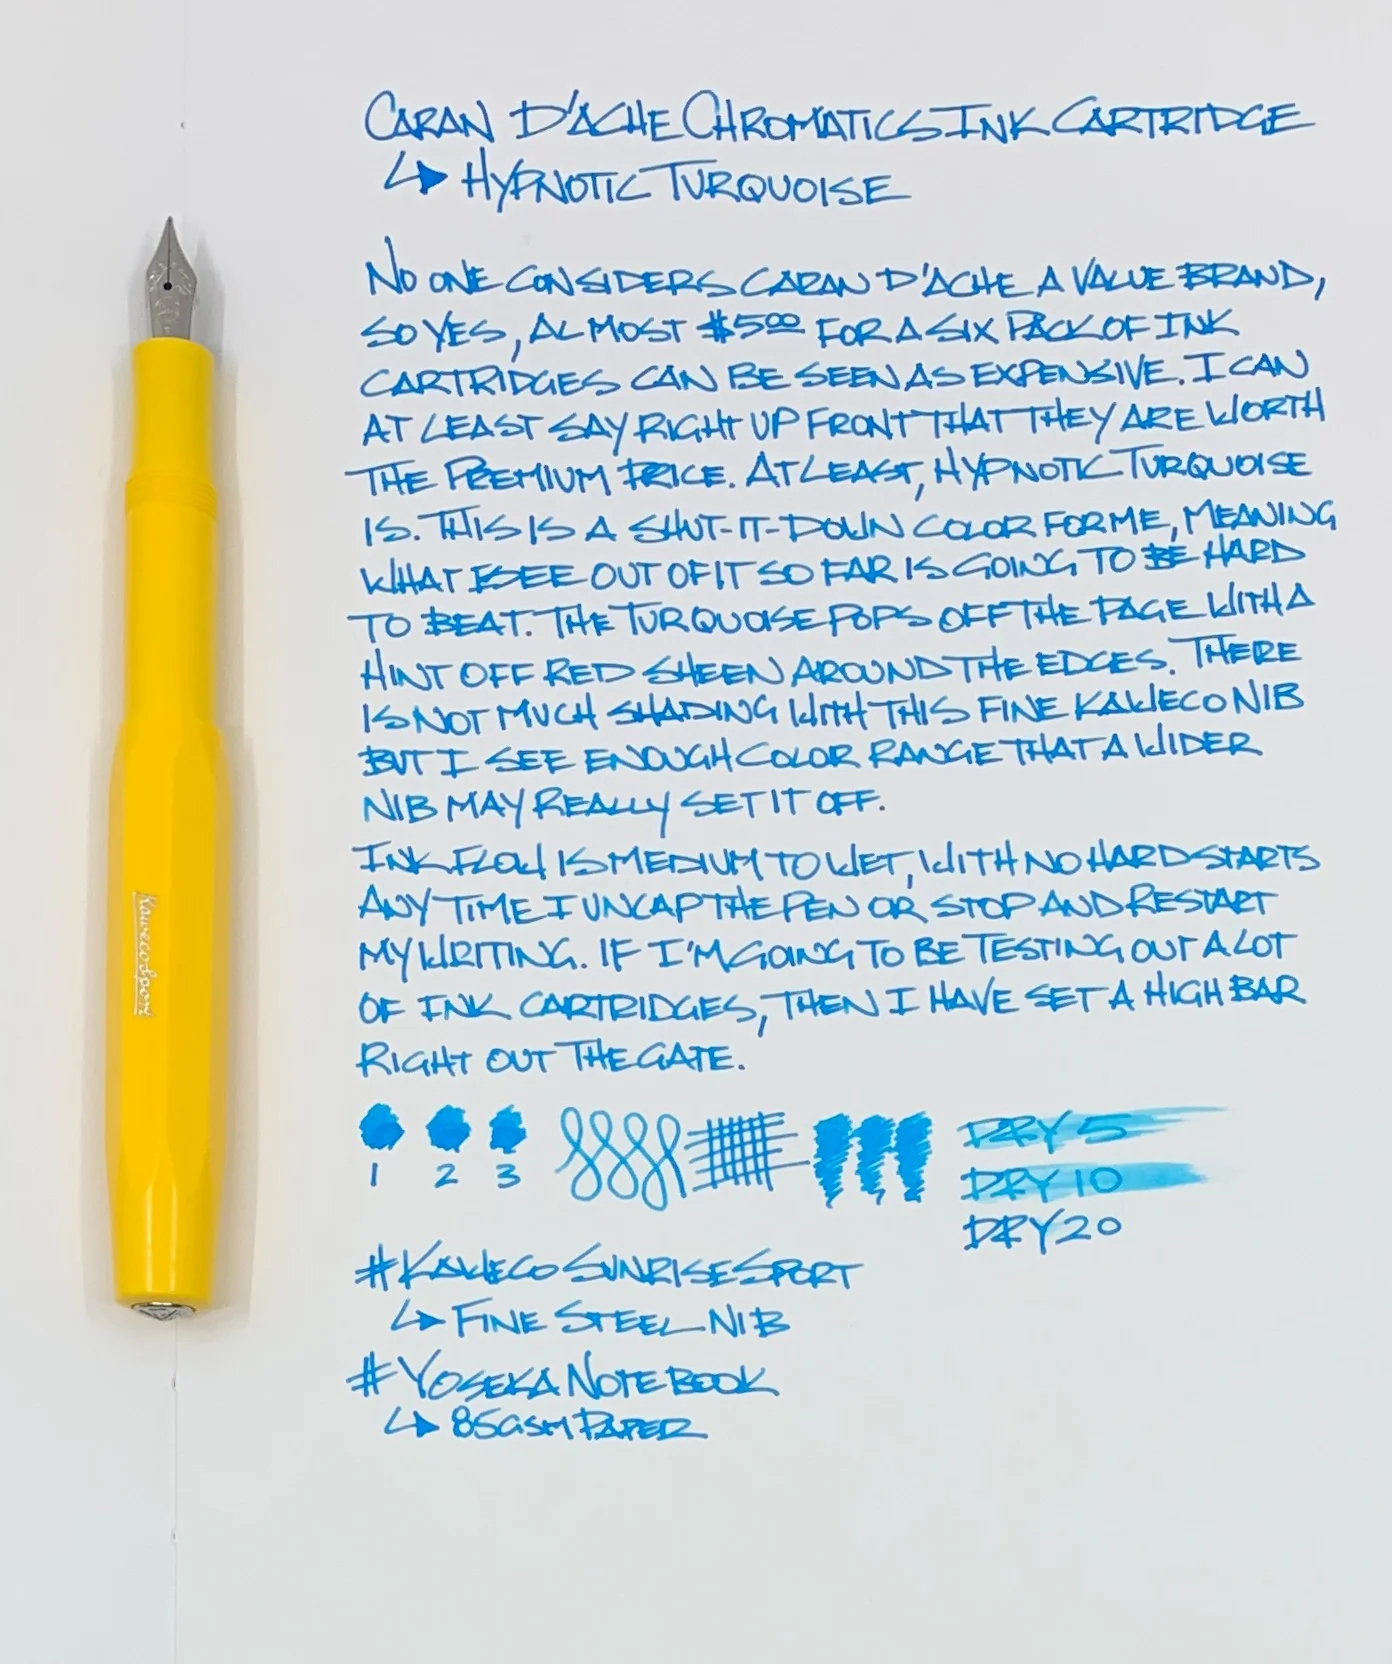 CARAN D'ACHE CHROMATICS INK CARTRIDGE
↳ HYPNOTIC TURQUOISE
NO ONE CONSIDERS CARAN D'ACHE A VALUE BRAND,
SO YES, ALMOST $5.00 FOR A SIX PACK OF INK
CARTRIDGES CAN BE SEEN AS EXPENSIVE. I CAN
AT LEAST SAY RIGHT UP FRONT THAT THEY ARE WORTH
THE PREMIUM PRICE. AT LEAST, HYPNOTIC TURQUOISE
IS. THIS IS A SHUT-IT-DOWN COLOR FOR ME, MEANING
WHAT I SEE OUT OF IT SO FAR IS GOING TO BE HARD
TO BEAT. THE TURQUOISE POPS OFF THE PAGE WITH A
HINT OFF RED SHEEN AROUND THE EDGES. THERE
IS NOT MUCH SHADING WITH THIS FINE KAWECO NIB
BUT I SEE ENOUGH COLOR RANGE THAT A WIDER
NIB MAY REALLY SET IT OFF.
INK FLOW IS MEDIUM TO WET, WITH NO HARD STARTS
ANY TIME I UNCAP THE PEN OR STOP AND RESTART
MY WRITING. IF I'M GOING TO BE TESTING OUT A LOT
OF INK CARTRIDGES, THEN I HAVE SET A HIGH BAR
RIGHT OUT THE GATE.
1 2 3
DRY 5
DRY 10
DRY 20
#KAWECOSUNRISESPORT
↳ FINE STEEL NIB
#YOSEKANOTEBOOK
↳ 85GSM PAPER
Kaweco Sport